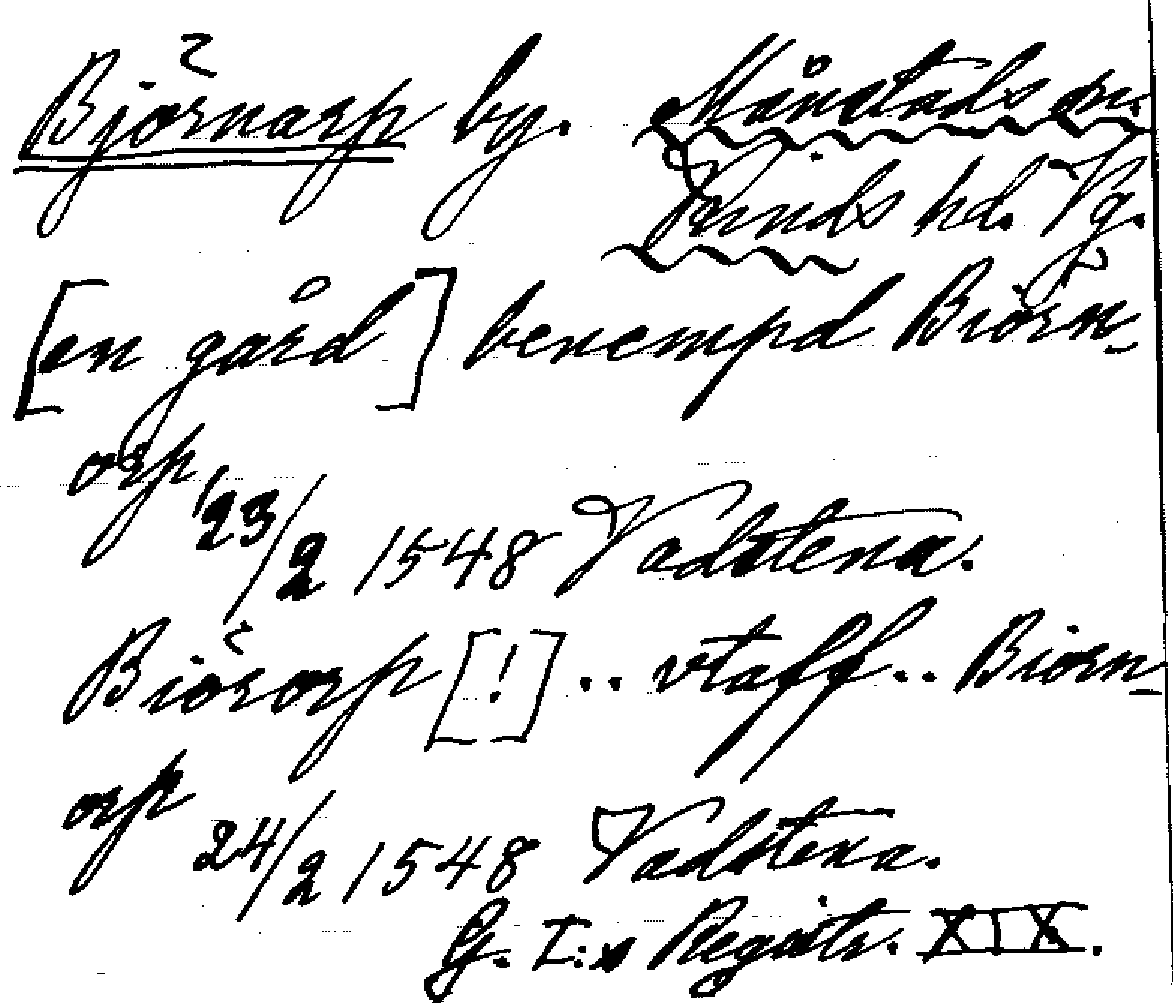 Björnarp by. Månstads sn.
Kinds hd. Vg.
[en gård] benempd Biörn-
orp 23/2 1548 Vadstena.
Biörorp [!] .. vtaff .. Biorn-
orp 24/2 1548 Vadstena.
G. I:s Registr. XIX.